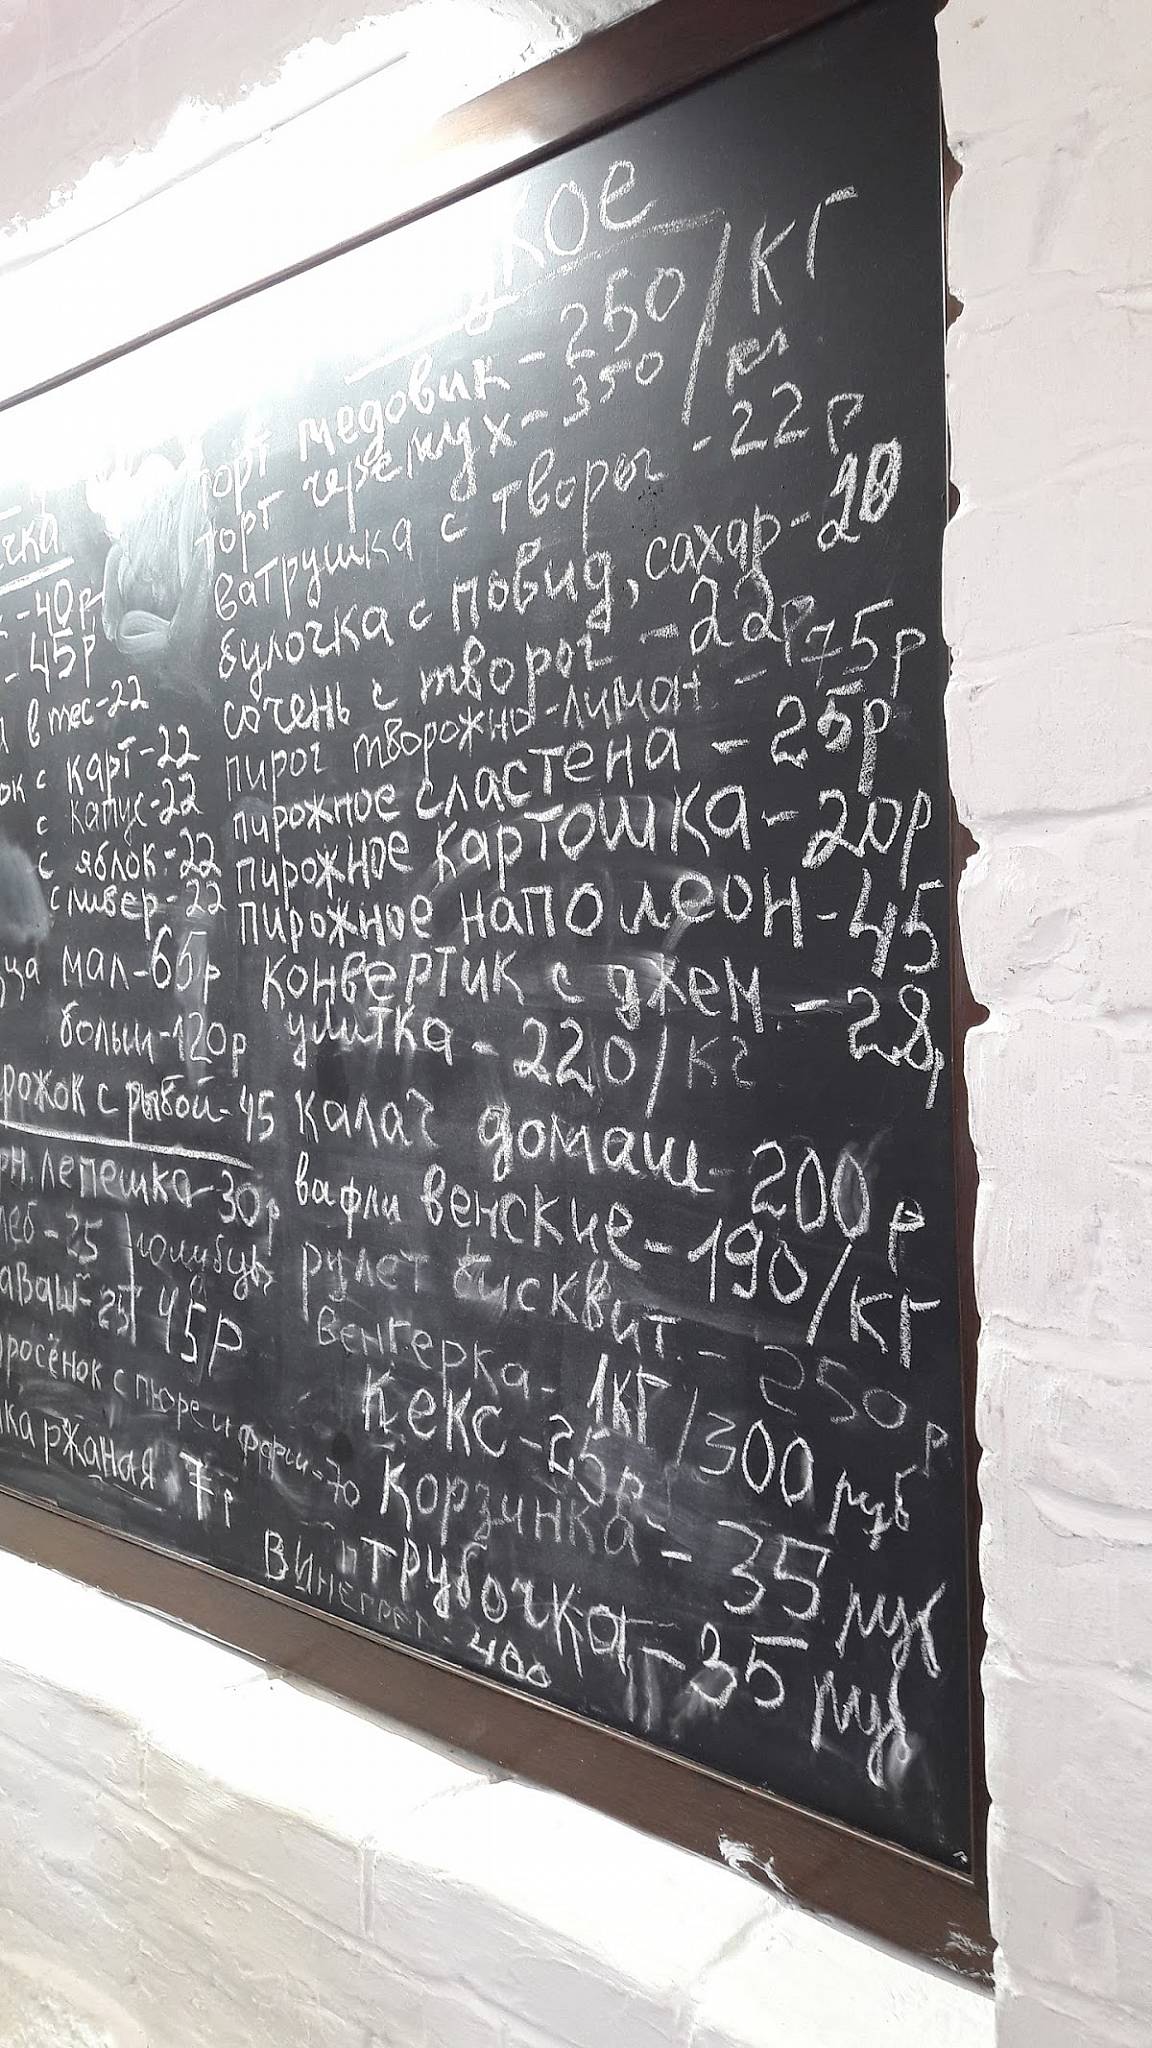 кое
торт медовик - 250 / кг
торт черемух - 350
ватрушка с творог - 22 р
булочка с повид, сахар - 20
сочень с творог - 22 р
пирог творожно-лиман - 75 р
пирожное сластена - 25р
пирожное картошка - 20р
пирожное наполеон - 45
конвертик с джем. - 28р
улитка - 220 / кг
калач домаш - 200 р
вафли венские - 190 / кг
рулет бисквит. - 250 р
венгерка - 1кг / 300 руб
Кекс - 25р
Корзинка - 35 руб
трубочка - 35 руб
винегрет - 400
чка
-40р
-45р
в тес-22
ок с карт-22
с капус-22
с яблок-22
с ливер-22
ца мал-65р
больш-120р
рожок с рыбой-45
рн. лепешка-30р
леб-25
аваш-25 45р
росёнок с пюре и фарш-70
ка ржаная 7р